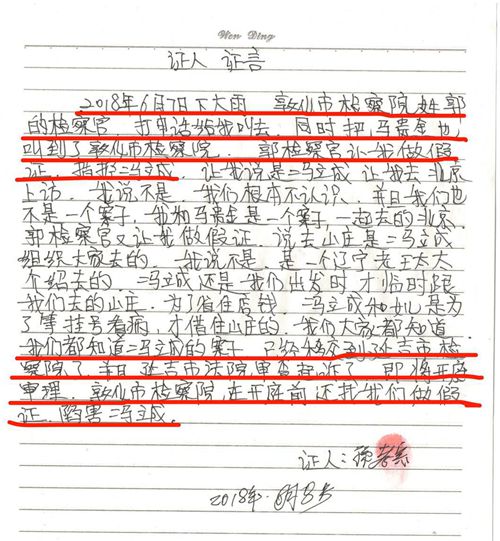 Wen Ding
证人 证言
2018年6月7日下大雨 敦化市检察院姓郭
的检察官 打电话给我叫去 同时把马贵金也
叫到了敦化市检察院 郭检察官让我做假
证 指控冯立成 让我说是冯立成让我去北京
上访 我说不是 我们根本不认识 并且我们也
不是一个案子 我和马贵金是一个案子一起去的北京
郭检察官又让我做假证 说去山庄是冯立成
组织大家去的 我说不是 是一个辽宁老王太太
介绍去的 冯立成还是我们出发时才临时跟
我们去的山庄 为了省住店钱 冯立成和她儿是为
了等挂号看病 才借住山庄的 我们大家都知道
我们都知道冯立成的案子 已经移交到了延吉市检
察院了 并且延吉市法院审查起诉了 即将开庭
审理 敦化市检察院在开庭前还找我们做假
证 陷害冯立成。
证人：
2018年